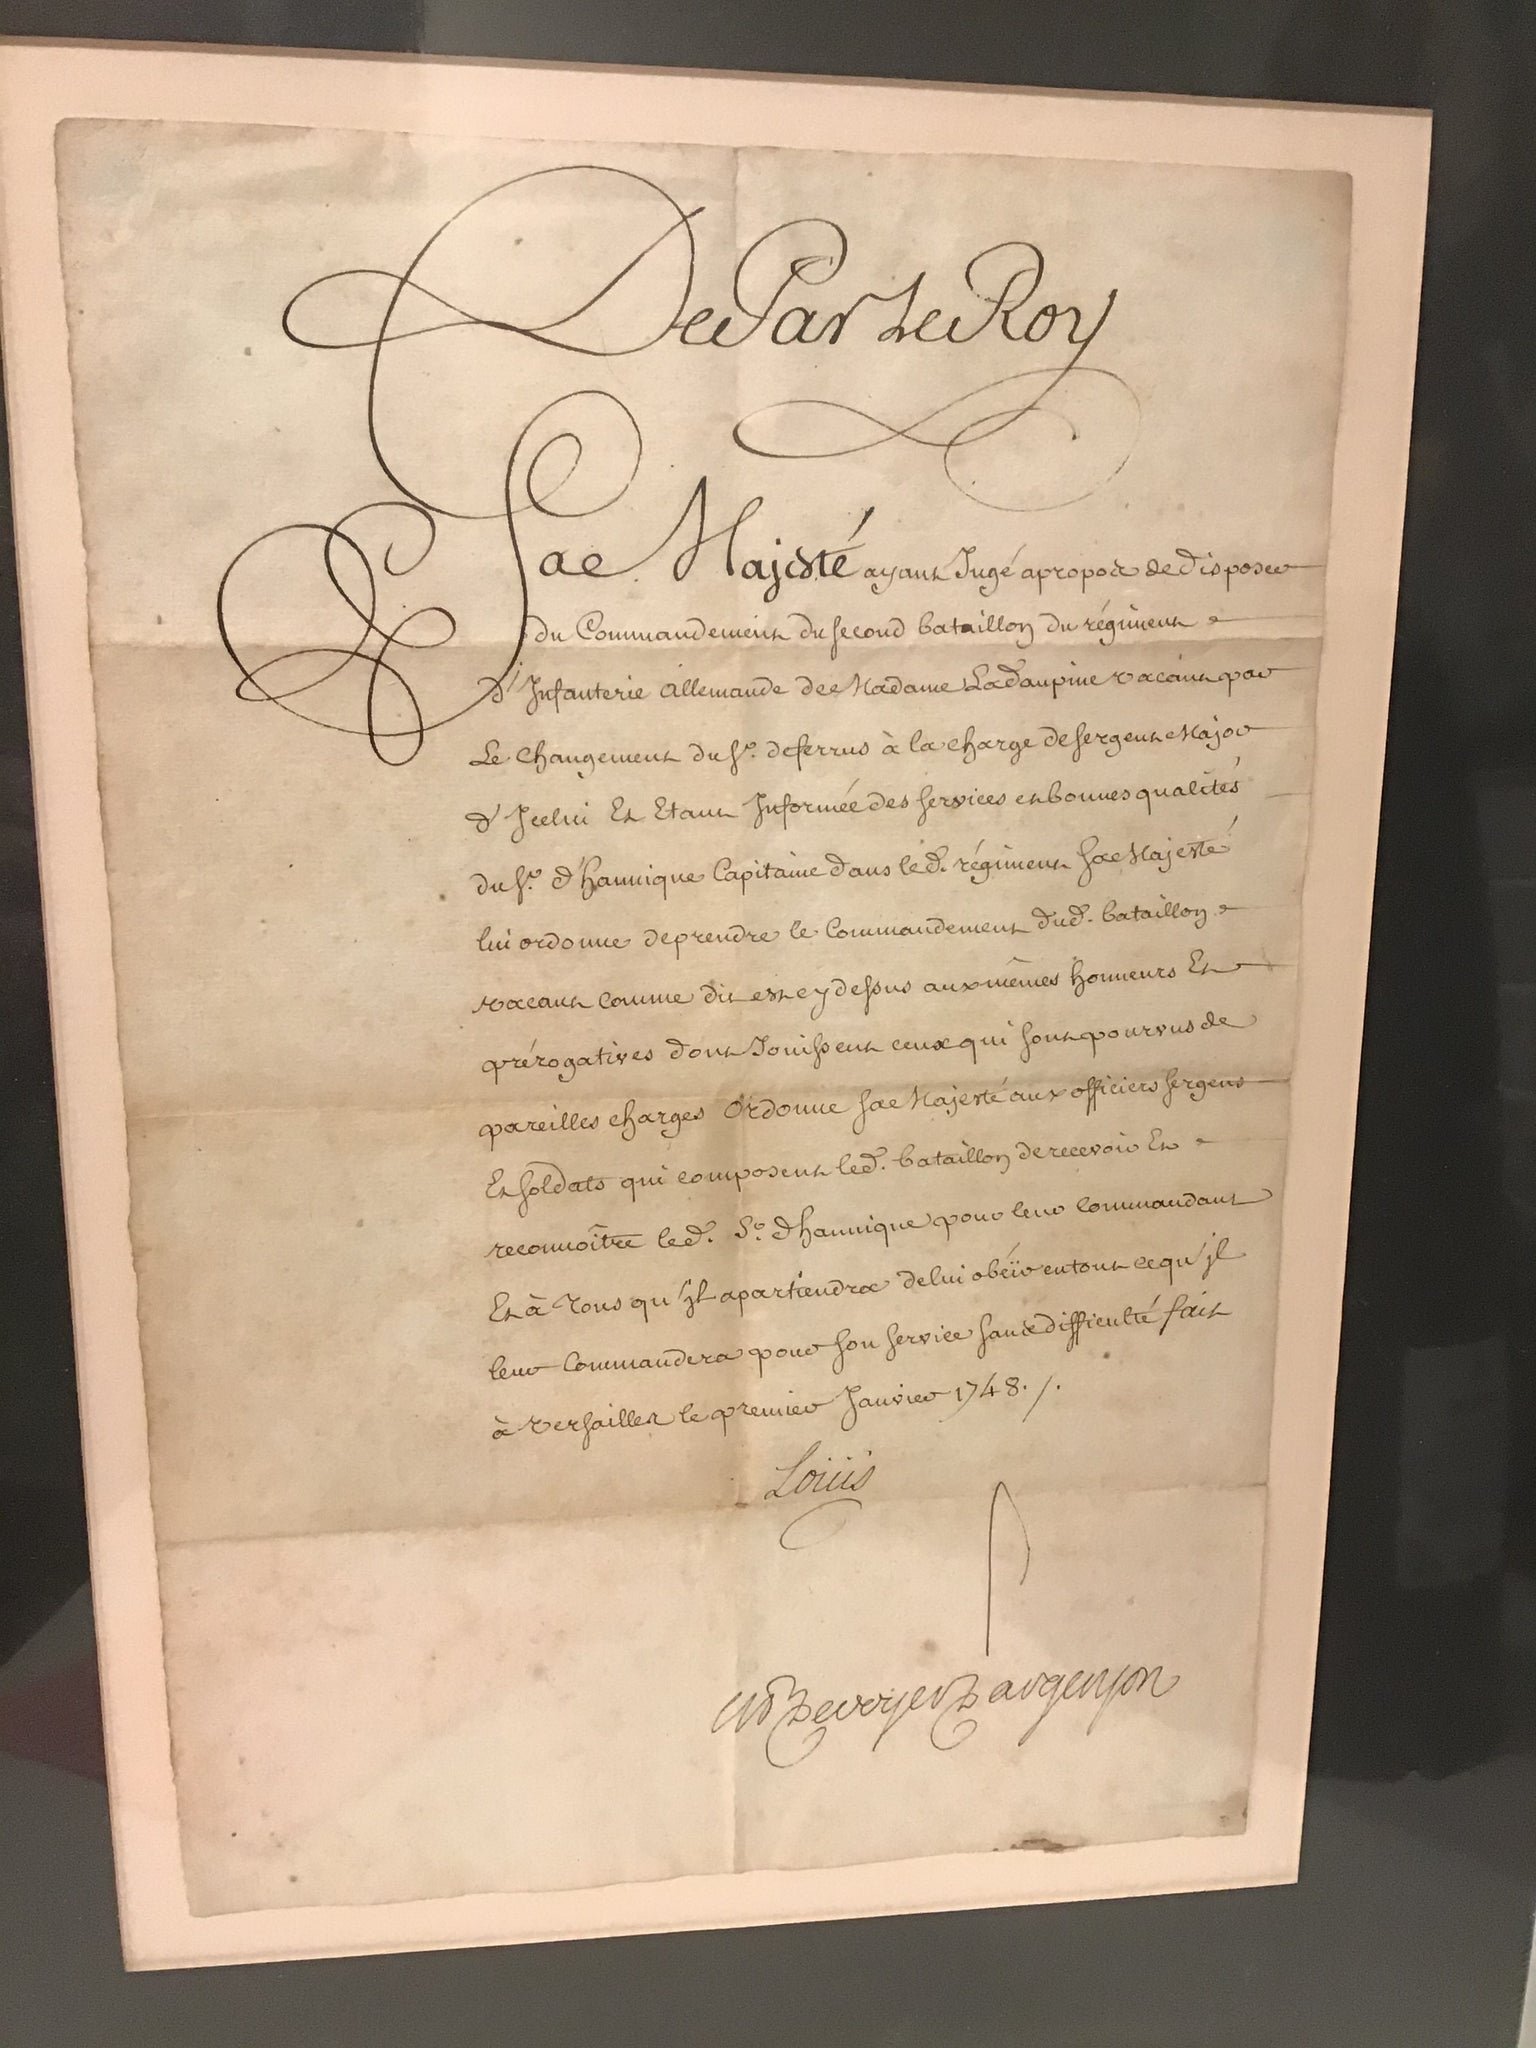 De Par Le Roy
Sa Majesté ayant Jugé apropos de disposer
du Commandement du second bataillon du régiment
d'Infanterie allemande de Madame La daupine vacant par
Le changement du Sr. deferrus à la charge de sergent Major
d'Jcelui Et Etant Informée des services et bonnes qualités
du Sr. d'hannique Capitaine dans led. régiment sa Majesté
lui ordonne de prendre le Commandement dud. bataillon
vacant comme dit est cy dessus aux mêmes honneurs Et
prérogatives dont Jouissent ceux qui sont pourvus de
pareilles charges Ordonne sa Majesté aux officiers sergens
Et soldats qui composent led. bataillon de recevoir Et
reconnoître led. Sr. d'hannique pour leur commandant
Et à Tous qu'jl apartiendra de lui obéïr en tout ce qu'jl
leur Commandera pour son service sans difficulté fait
à versailles le premier Janvier 1748 ./.
Louis
M P De voyer D argenson